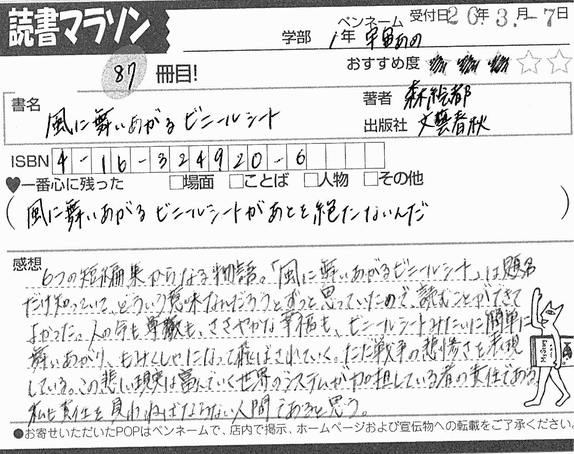 読書マラソン
受付日 20年3月-7日
ペンネーム
学部 1年 宇宙あめ
87 冊目!
おすすめ度 ★★★☆☆
書名
風に舞いあがるビニールシート
著者 森絵都
出版社 文藝春秋
ISBN 4-16-324920-6
♥一番心に残った □場面 □ことば □人物 □その他
(風に舞いあがるビニールシートがあとを絶たないんだ)
感想
6つの短編集からなる物語。「風に舞いあがるビニールシート」は題名
だけ知っていて、どういう意味なんだろうとずっと思っていたので、読むことができて
よかった。人の命も尊厳も、ささやかな幸福も、ビニールシートみたいに簡単に
舞いあがり、もみくしゃになって飛ばされていく。ただ戦争の悲惨さを表現
している。この悲しい現実は富んでいく世界のシステムが加担している者の責任である。
私も責任を負わねばならない人間であると思う。
●お寄せいただいたPOPはペンネームで、店内で掲示、ホームページおよび宣伝物への転載をご了承ください。